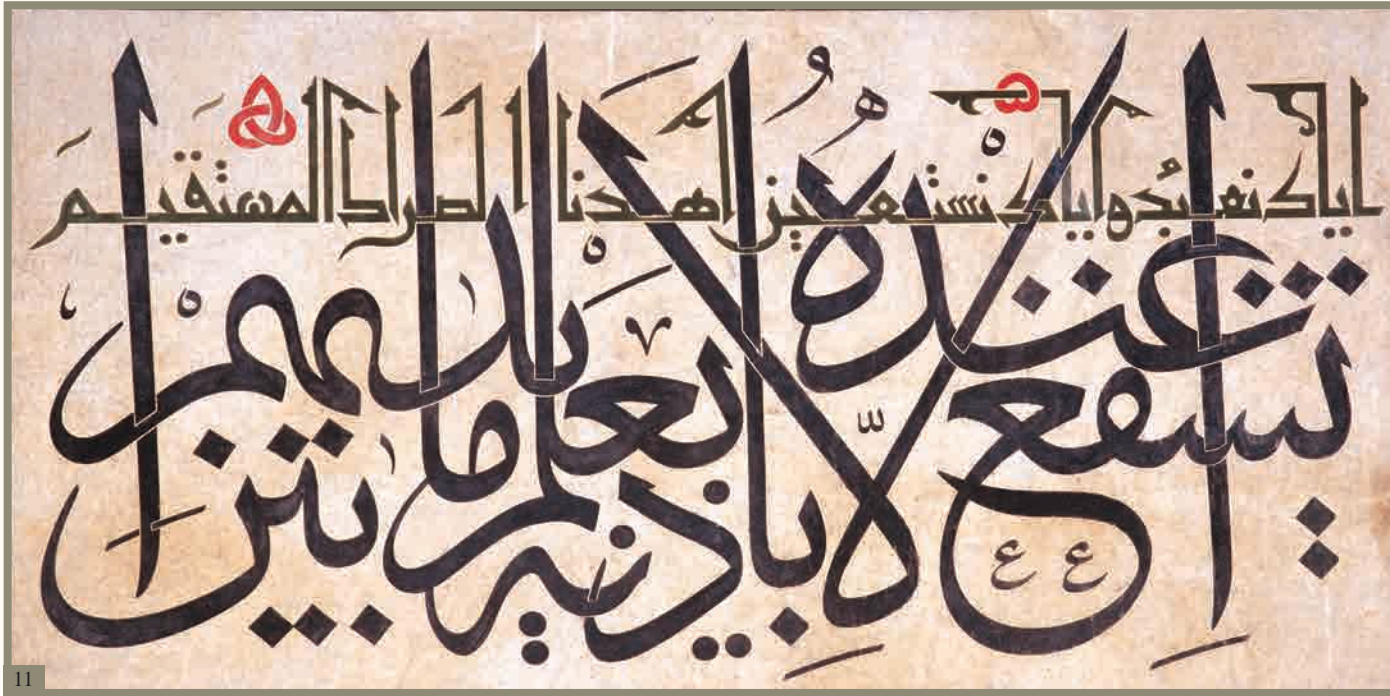 اياك نعبد و اياك نستعين اهدنا الصراط المستقيم
يشفع عنده إلا بإذنه يعلم ما بين أيديهم
11